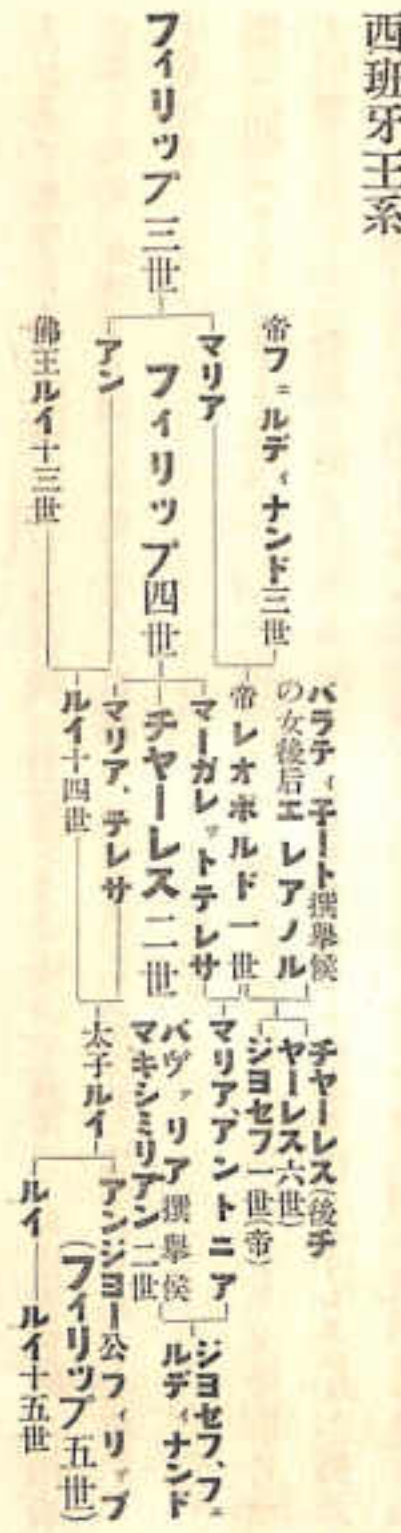 西班牙王系
フィリップ三世
帝フェルディナンド三世
マリア
フィリップ四世
アン
佛王ルイ十三世
パラティ子ート撰擧候
の女後后エレアノル
帝レオポルド一世
マーガレットテレサ
チャーレス二世
マリア、テレサ
ルイ十四世
チャーレス(後チ
ヤーレス六世)
ジヨセフ一世(帝)
マリア、アントニア
バヴァリア撰擧候
マキシミリアン二世
太子ルイ
ジヨセフ、フェ
ルディナンド
アンジヨー公フィリップ
(フィリップ五世)
ルイ
ルイ十五世